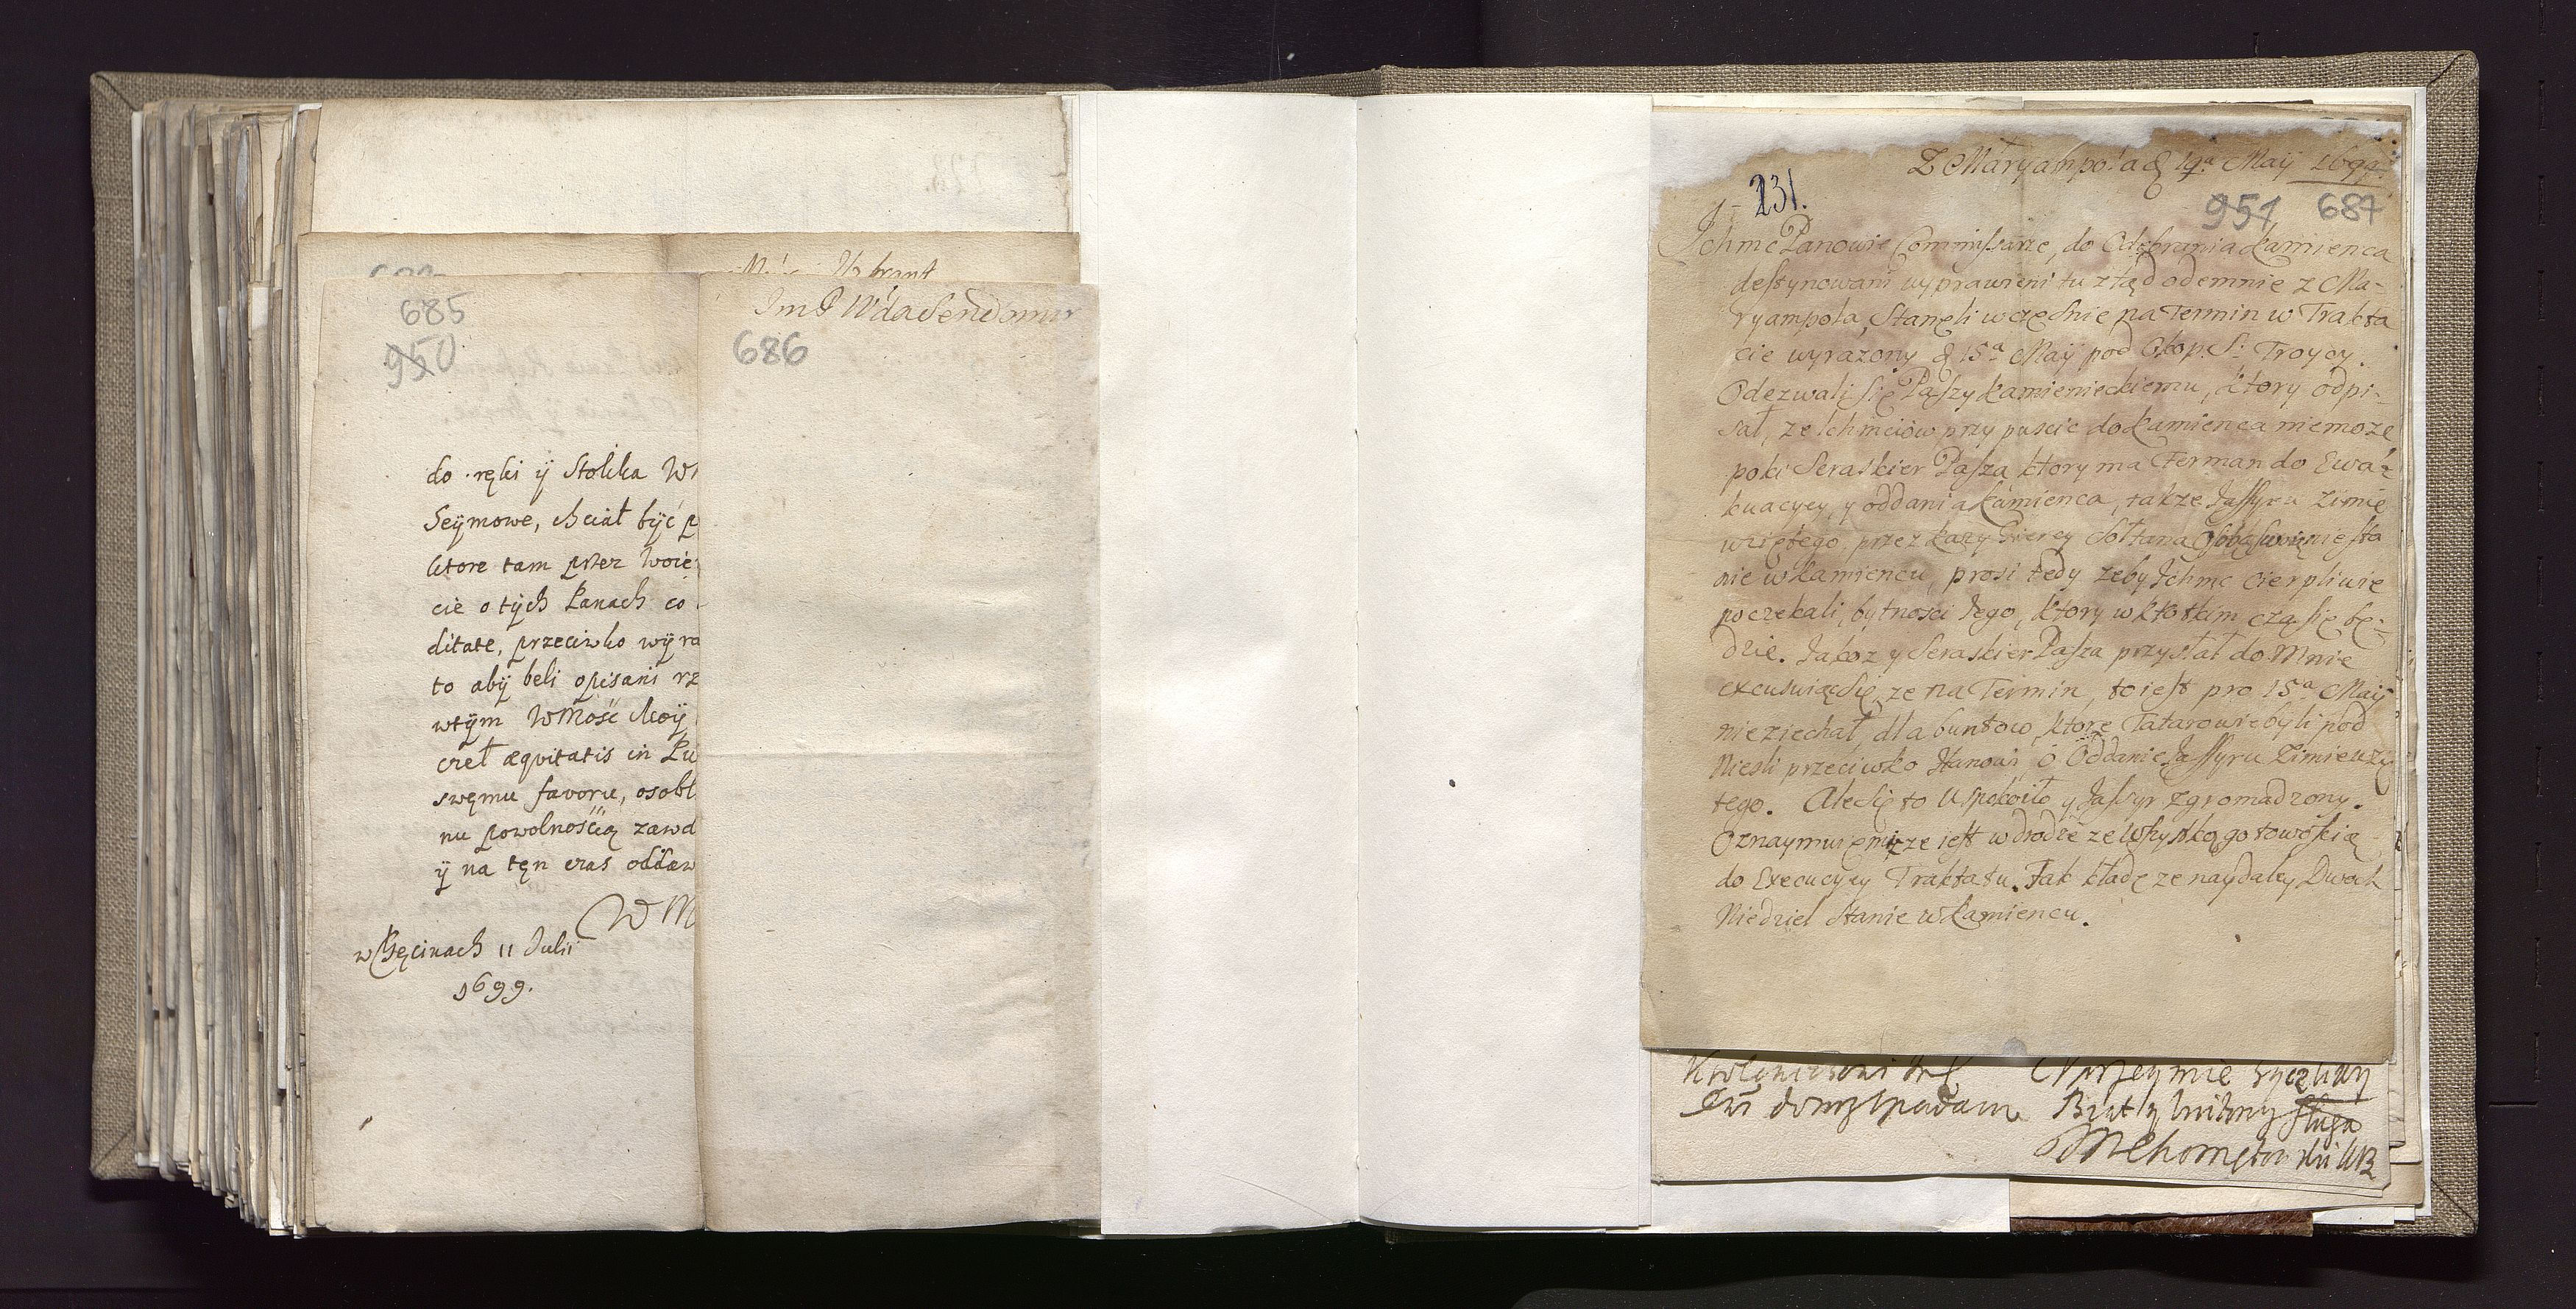 685
950
do ręki ÿ Stolika W
Seÿmowe, chciał być p
ktore tam przez woie
cie o tÿch Panach co
ditate, przeciwko wÿra
to abÿ beli opisani rz
wtÿm WMość Moÿ
cret æqvitatis in Pu
swęmu favoru, osobl
nu powolnośćią zawd
ÿ na tęn czas oddaw
W M
w Chęcinach 11 Julii
1699.
Im P W'da Sendomir
686
Z Maryampola d 19a Maij 1699.
231.
951 687
Ichmc Panowie Commissarze, do Odebrania Kamienca
destynowani wyprawieni tu ztąd odemnie z Ma-
ryampola, Stanęli wczęsnie na Termin w Trakta
cie wyrazony d 15a Maij pod Okop. S: Troycy.
Odezwali się Paszy Kamienieckiemu, ktory odpi-
sał, ze Ichmciow przypuscic do Kamienca niemoze
poki Seraskier Pasza ktory ma Ferman do Ewa-
kuacyey y oddania Kamienca, takze Jassyru zimie
wziętego przez Kazy Gierey Sołtana Osobą swoią nie sta
nie w Kamiencu, prosi tedy zeby Ichmc cierpliwie
poczekali, bytnosci Jego, ktory w krotkim czasie bę-
dzie. Jakoz y Seraskier Pasza przysłał do Mnie
excusuiąc się, ze na Termin, to iest pro 15a Maij
nieziechał dla buntow, ktore Tatarowie byli pod
niesli przeciwko Hanowi o Oddanie Jassyru Zimie wzię
tego. Ale się to Uspokoiło y Jassyr zgromadzony.
Oznaymuie mi ze iest w drodze ze wszystką gotowością
do Execucyey Traktatu. Jak kładę ze naydaley Dwoch
Niedziel stanie w Kamiencu.
Uprzeymie zyczliwy
Brat y unizony sługa
MChomętowski WB